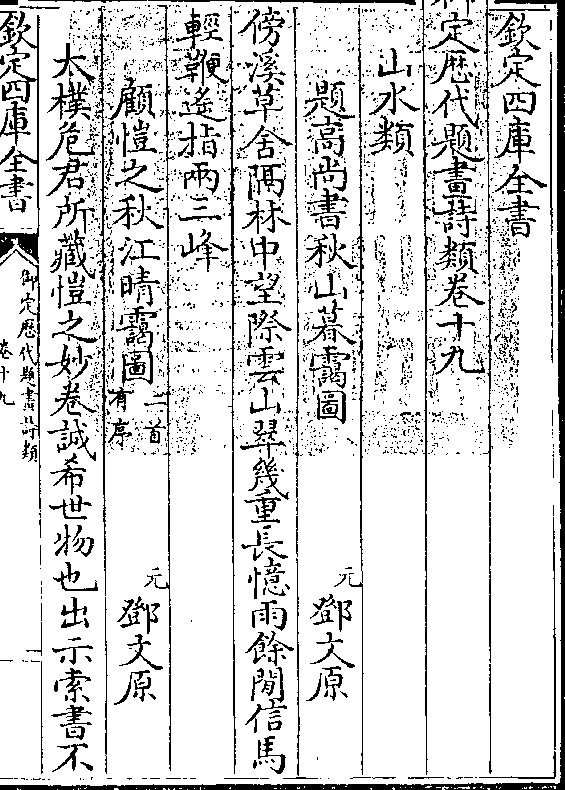 欽定四庫全書
御定歴代題畫詩類卷十九
山水類
題高尚書秋山暮靄圖　元鄧文原
傍溪草舍隔林中望際雲山翠幾重長憶雨餘閒信馬
輕鞭遙指兩三峰
顧愷之秋江晴靄圖二首有序　元鄧文原
太樸危君所藏愷之妙卷誠希世物也出示索書不
欽定四庫全書
御定歴代題畫詩類
卷十九
一